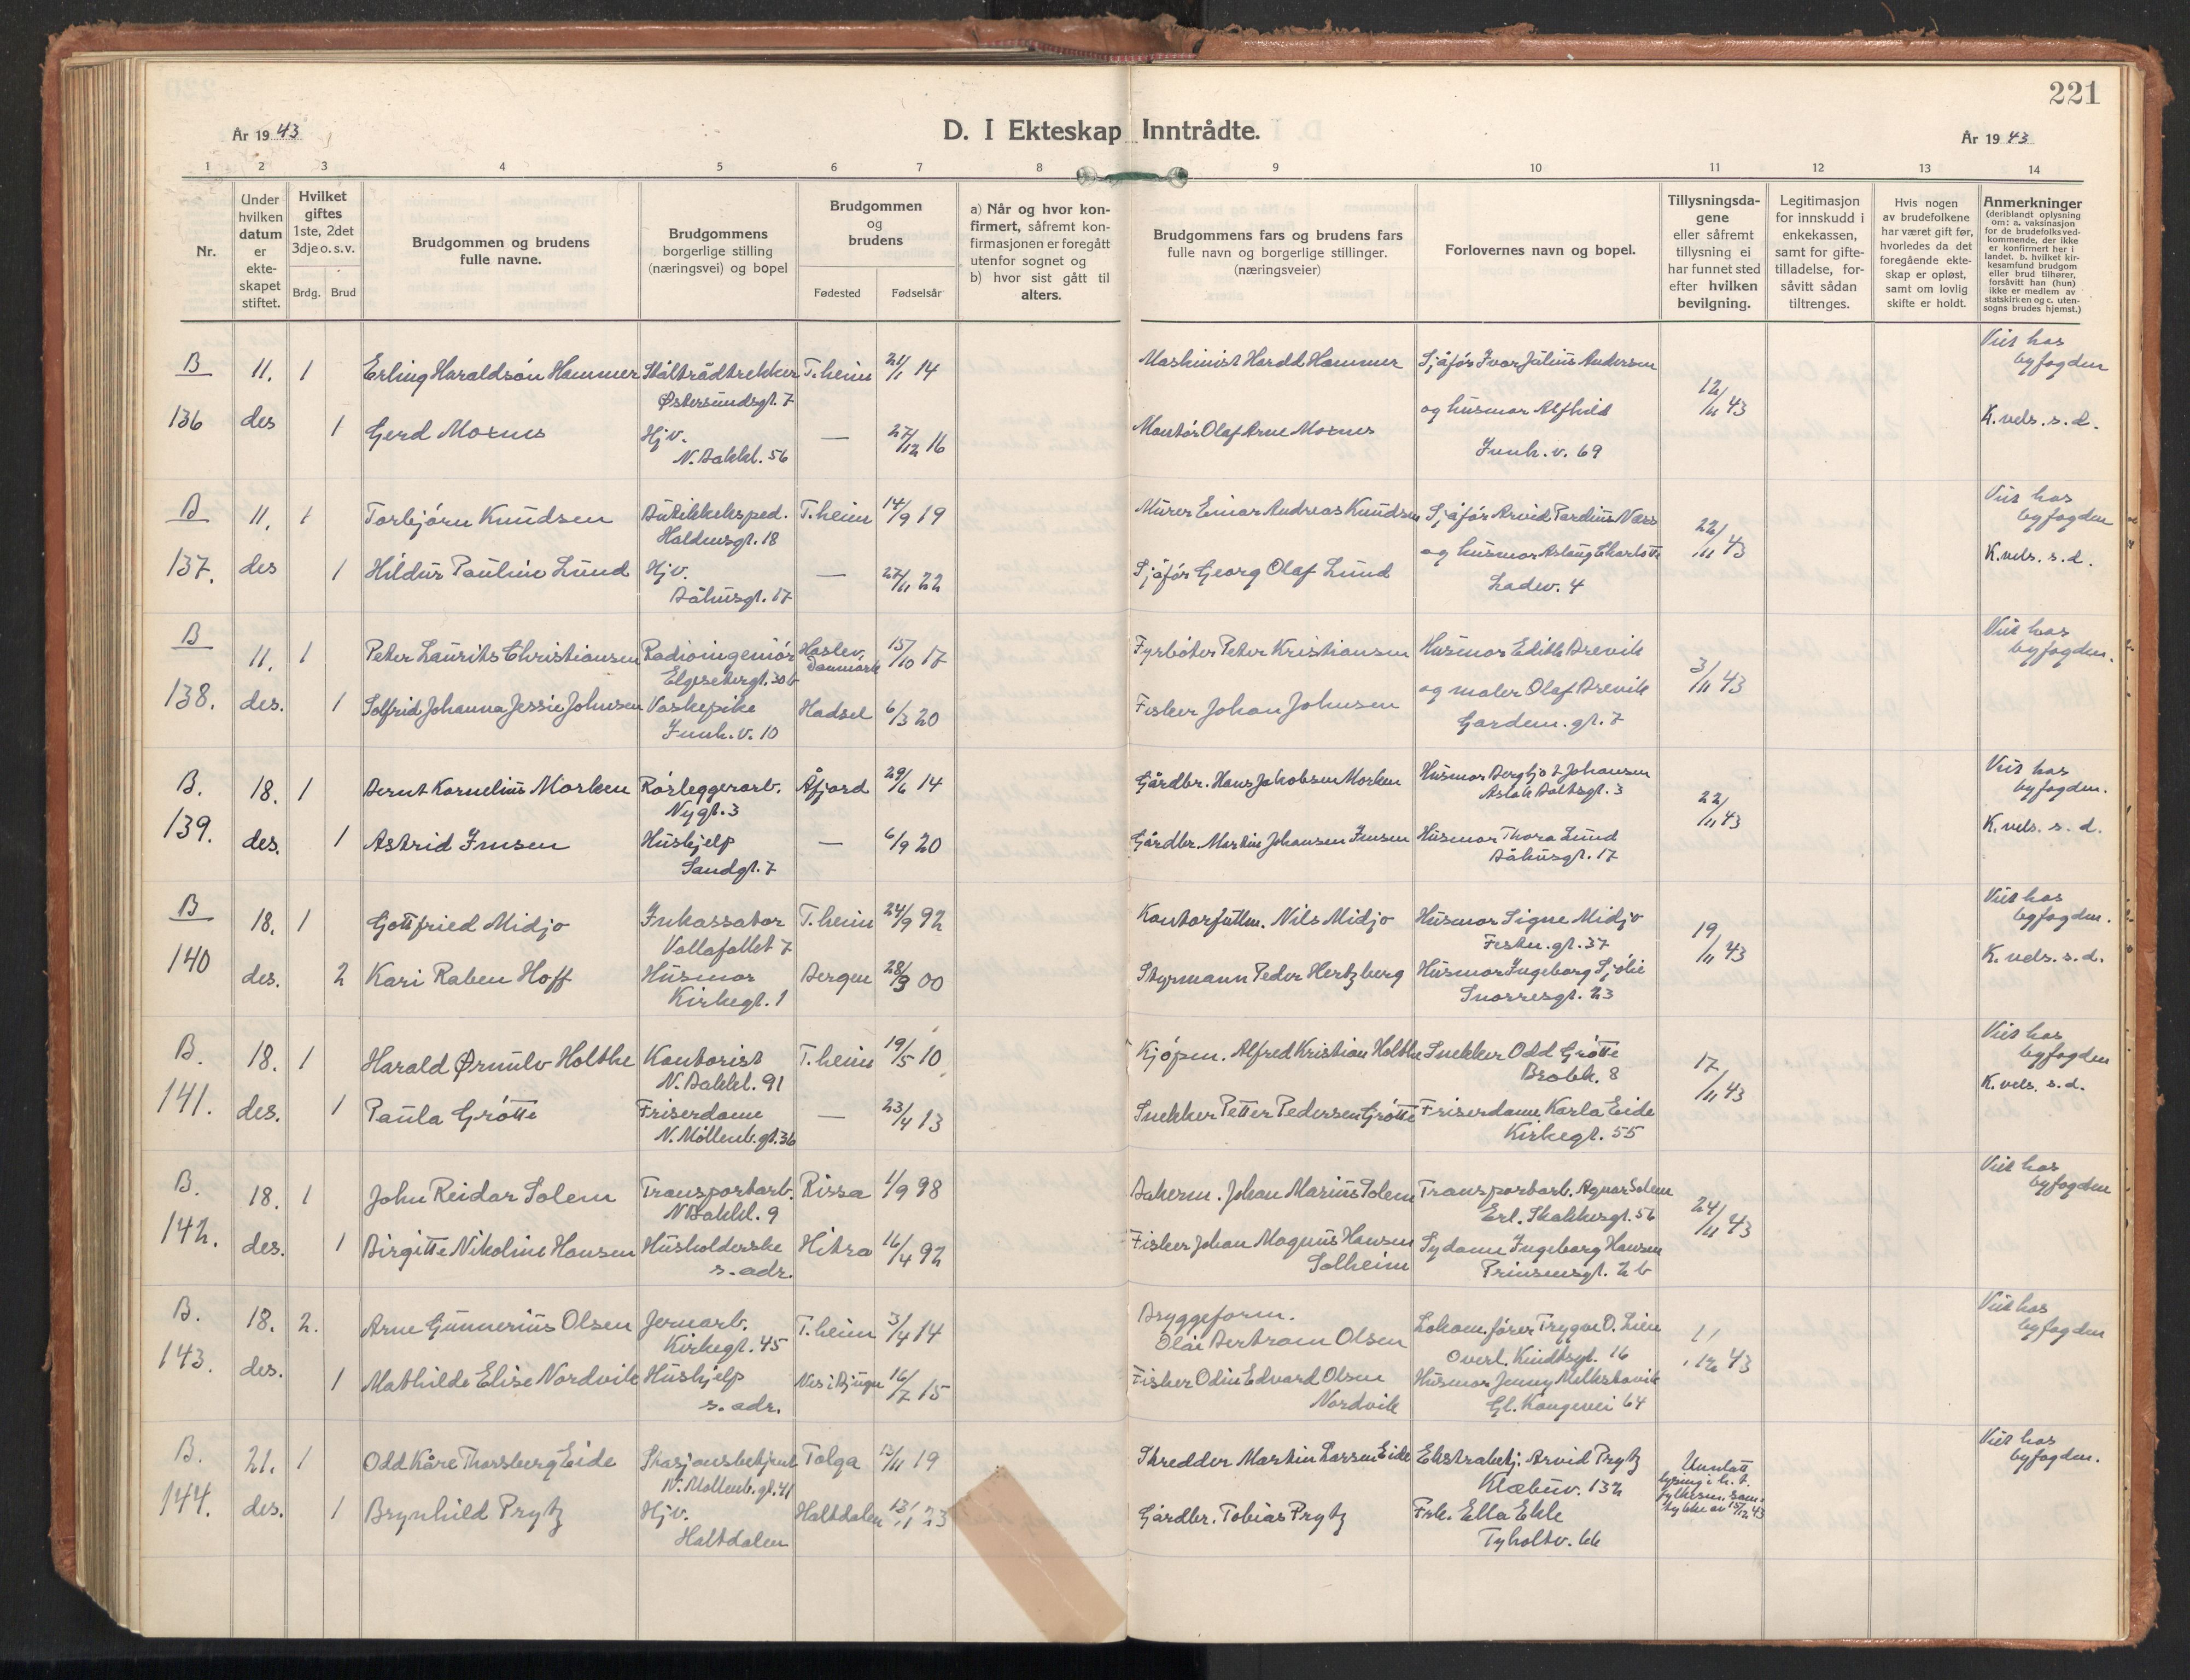 221
År 19 43
D. I Ekteskap Inntrådte.
År 19 43
1 2 3 4 5 6 7 8 9 10 11 12 13 14
Nr.
Under hvilken datum er ekte-skapet stiftet.
Hvilket giftes 1ste, 2det 3dje o. s. v.
Brdg. Brud
Brudgommen og brudens fulle navne.
Brudgommens borgerlige stilling (næringsvei) og bopel
Brudgommen og brudens
Fødested Fødselsår
a) Når og hvor kon-firmert, såfremt kon-firmasjonen er foregått utenfor sognet og b) hvor sist gått til alters.
Brudgommens fars og brudens fars fulle navn og borgerlige stillinger. (næringsveier)
Forlovernes navn og bopel.
Tillysningsda-gene eller såfremt tillysning ei har funnet sted efter hvilken bevilgning.
Legitimasjon for innskudd i enkekassen, samt for gifte-tilladelse, for-såvitt sådan tiltrenges.
Hvis nogen av brudefolkene har været gift før, hvorledes da det foregående ekte-skap er opløst, samt om lovlig skifte er holdt.
Anmerkninger (deriblandt oplysning om: a. vaksinasjon for de brudefolks ved-kommende, der ikke er konfirmert her i landet. b. hvilket kir-kesamfund brudgom eller brud tilhører, forsåvitt han (hun) ikke er medlem av statskirken og c. uten-sogns brudes hjemst.)
B 11. 1 Erling Haraldsøn Hammer Ståltrådtrekker T.heim 21/1 14 Maskinist Harald Hammer Sjåfør Ivar Julius Andersen Viet hos byfogden
Østersundsgt. 7
136 des 1 Gerd Moxnes Hjv. — 27/12 16 Montør Olaf Arne Moxnes og husmor Alfhild 12/11 43 K. vels. s. d.
N. Bakkl. 56 Innh. v. 69
B 11. 1 Torbjørn Knudsen Butikkeksped. T.heim 14/9 19 Murer Einar Andreas Knudsen Sjåfør Arvid Pardius Næss 22/11 43 Viet hos byfogden
Haldensgt. 18 og husmor Aslaug Charlotte
137. des 1 Hildur Pauline Lund Hjv. — 27/11 22 Sjåfør Georg Olaf Lund Ladev. 4 K. vels. s. d.
Båhusgt. 17
B 11. 1 Peter Laurits Christiansen Radioingeniør Haslev, Danmark 15/10 17 Fyrbøter Peter Kristiansen Husmor Edith Brevik Viet hos byfogden.
Elgesetergt. 30 b
138. des. 1 Solfrid Johanna Jessie Johnsen Vaskepike Hadsel 6/3 20 Fisker Johan Johnsen og maler Olaf Brevik 3/11 43
Innh. v. 10 Gardem. gt. 7
B. 18. 1 Bernt Kornelius Morken Rørleggerarb. Åfjord 29/6 14 Gårdbr. Hans Jakobsen Morken Husmor Bergljot Johansen Viet hos byfogden.
Nygt. 3 Aslak Boltsgt. 3 22/11 43
139. des. 1 Astrid Imsen Hushjelp — 6/9 20 Gårdbr. Martin Johansen Imsen Husmor Thora Lund K. vels. s. d.
Sandgt. 7 Båhusgt. 17
B 18. 1 Gottfried Midjo Inkassator T.heim 24/9 92 Kontorfullm. Nils Midjo Husmor Signe Midjo Viet hos byfogden.
Vollafallet 7 Festn. gt. 37 19/11 43
140 des. 2 Kari Raben Hoff Husmor Bergen 28/9 00 Styrmann Peder Hertzberg Husmor Ingeborg Sjølie K. vels. s. d.
Kirkegt. 1 Snorresgt. 23
B. 18. 1 Harald Ørnulv Holthe Kontorist T.heim 19/5 10 Kjøpm. Alfred Kristian Holthe Snekker Odd Grøtte Viet hos byfogden
N. Bakkl. 91 Brobk. 8 17/11 43
141. des. 1 Paula Grøtte Friserdame — 23/4 13 Snekker Petter Pedersen Grøtte Friserdame Karla Eide K. vels. s. d.
N. Møllenb. gt. 36 Kirkegt. 55
B. 18. 1 John Reidar Solem Transportarb. Rissa 1/9 98 Bakerm. Johan Marius Solem Transportarb. Agnar Solem Viet hos byfogden
N Bakkl. 9 Erl. Skakkesgt. 56 24/11 43
142. des. 1 Birgitte Nikoline Hansen Husholderske Hitra 16/4 92 Fisker Johan Magnus Hansen Sydame Ingeborg Hansen
s. adr. Solheim Prinsensgt. 2 b
B. 18. 2. Arne Gunnerius Olsen Jernarb. T.heim 3/4 14 Bryggeform. Lokom. fører Trygve O. Lien Viet hos byfogden
Kirkegt. 45 Olai Bertram Olsen Overl. Kindtsgt. 16 1/12 43
143. des. 1 Mathilde Elise Nordvik Hushjelp Nes i Bjugn 16/7 15 Fisker Odin Edvard Olsen Husmor Jenny
s. adr. Nordvik Gl. Kongevei 64
B. 21. 1 Odd Kåre Thorsberg Eide Stasjonsbetjent Tolga 12/11 19 Skredder Martin Larsen Eide Ekstrabetj. Arvid Prytz Unnlatt lysing i h. t. Viet hos byfogden.
N. Møllenb. gt. 41 Klæbuv. 132 fylkesm. sam-
144. des. 1 Brynhild Prytz Hjv. Haltdalen 13/1 23 Gårdbr. Tobias Prytz Frk. Ella Ekle tykke av 15/12 43
Haltdalen Tyholtv. 66